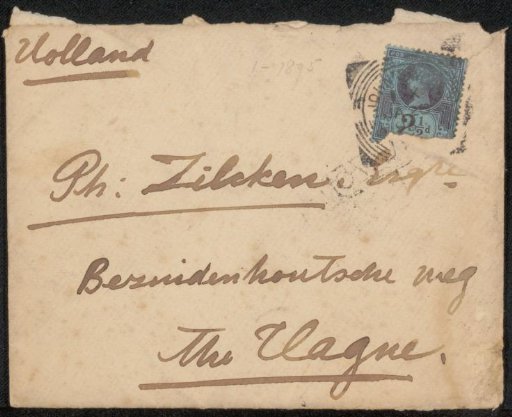 Holland
1-1895
2½d
Ph: Zilcken Esqre
Bezuidenhoutsche weg
The Hague.